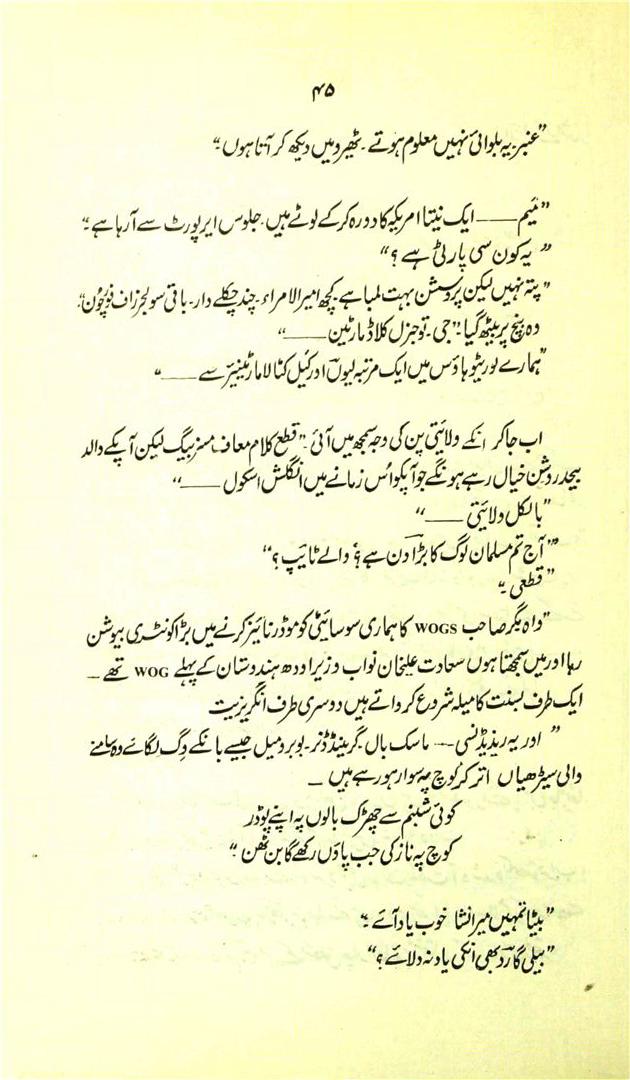 ۴۵
”عنبر۔ یہ بلوائی نہیں معلوم ہوتے۔ ٹھیرو میں دیکھ کر آتا ہوں۔“
”میٔم —— ایک نیتا امریکہ کا دورہ کر کے لوٹے ہیں۔ جلوس ایرپورٹ سے آرہا ہے۔“
”یہ کون سی پارٹی ہے؟“
”پتہ نہیں لیکن پروسشن بہت لمبا ہے۔ کچھ امیر الامراء۔ چند چکلے دار۔ باقی سولجرز آف فورچُون۔“
وہ بنچ پر بیٹھ گیا۔ ”جی۔ تو جنرل کلاڈ مارٹین ——“
”ہمارے لوریٹو ہاؤس میں ایک مرتبہ لیوں اور کیل کٹا لا مارٹینیئر سے ——“
اب جا کر انکے ولائیتی پن کی وجہ سمجھ میں آئی۔ ”قطع کلام معاف مسز بیگ لیکن آپکے والد
بیحد روشن خیال رہے ہونگے جو آپکو اُس زمانے میں انگلش اسکول ——“
”بالکل ولائیتی ——“
”’آج تم مسلمان لوگ کا بڑا دن ہے؟‘ والے ٹائیپ؟“
”قطعی۔“
”واہ بیگر صاحب WOGS کا ہماری سوسائیٹی کو موڈرنائیز کرنے میں بڑا کونٹری بیوشن
رہا اور میں سمجھتا ہوں سعادت علیخان نواب وزیر اودھ ہندوستان کے پہلے WOG تھے۔
ایک طرف بسنت کا میلہ شروع کرواتے ہیں دوسری طرف انگریزیت
”اور یہ ریذیڈنسی — ماسک بال۔ گرینڈ ڈنر۔ بوبرومیل جیسے بانکے وِگ لگائے وہ سامنے
والی سیڑھیاں اتر کر کوچ پہ سوار ہو رہے ہیں —
کوئی شبنم سے چھڑک بالوں پہ اپنے پوڈر
کوچ پہ ناز کی جب پاؤں رکھے گا بن ٹھن۔“
”بیٹا تمہیں میر انشا خوب یاد آئے۔“
”بیلی گارد بھی انکی یاد نہ دلائے؟“